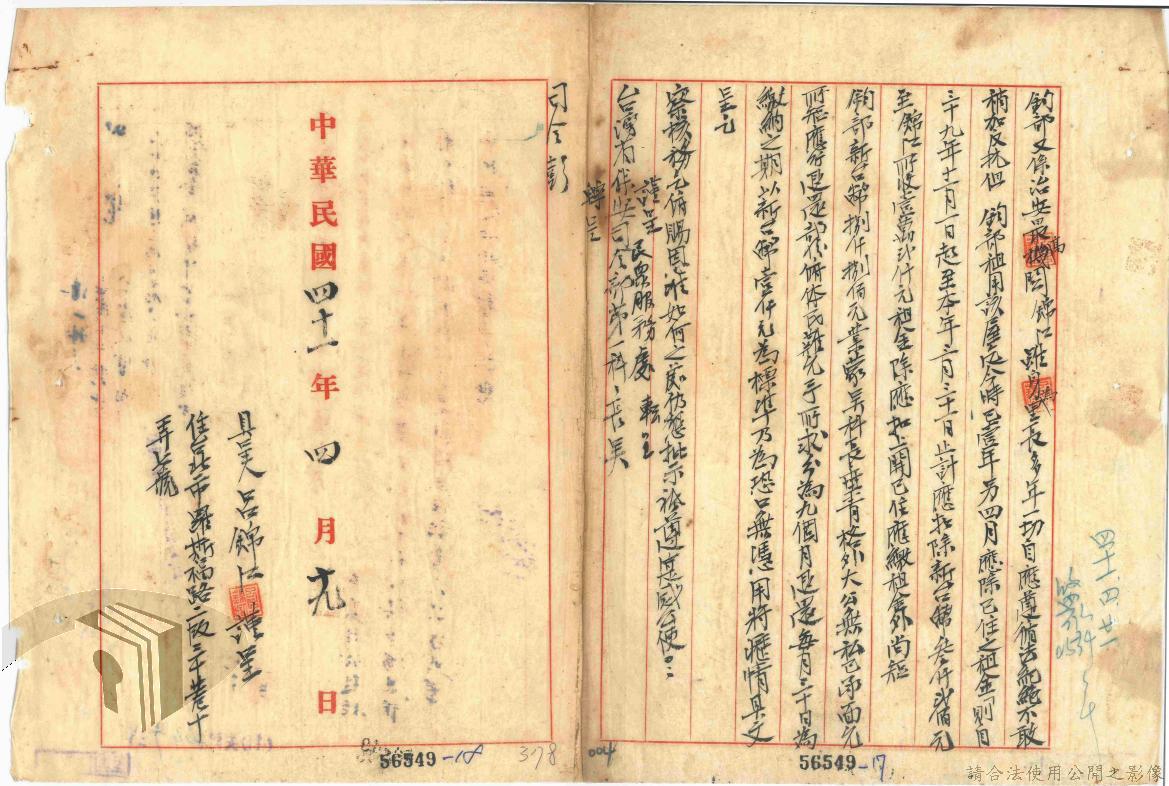 鈞部又係治安最高機関錦江雖身為里長多年一切自應遵循法紀絕不敢
稍加反抗但　鈞部租用該屋迄今時已壹年另四月應除已住之租金「則自
三十九年十二月一日起至本年三月三十一日止計應扣除新台幣叁仟弍佰元
至錦江所收壹萬弍仟元租金除應扣上開已住應繳租金外尚短
鈞部新台幣捌仟捌佰元業蒙吳科長世青格外大公無私已承面允
所短應行退還部份俯体民難允予所求分為九個月退還每月三十日為
繳納之期以新台幣壹仟元為標準乃為恐口無憑用將瀝情具文
呈乞
察核務乞俯賜恩准如何之處仍懇批示祇遵是感公便
謹呈　民眾服務處　轉呈
台灣省保安司令部第一科科長吳
轉呈
司令彭
中華民國四十一年四月　九　日
具呈人　呂錦江　謹呈
住台北市羅斯福路二段三十巷十
弄　號
四十一 四 廿二
56549-18
378
004
56549-17
請合法使用公開之影像